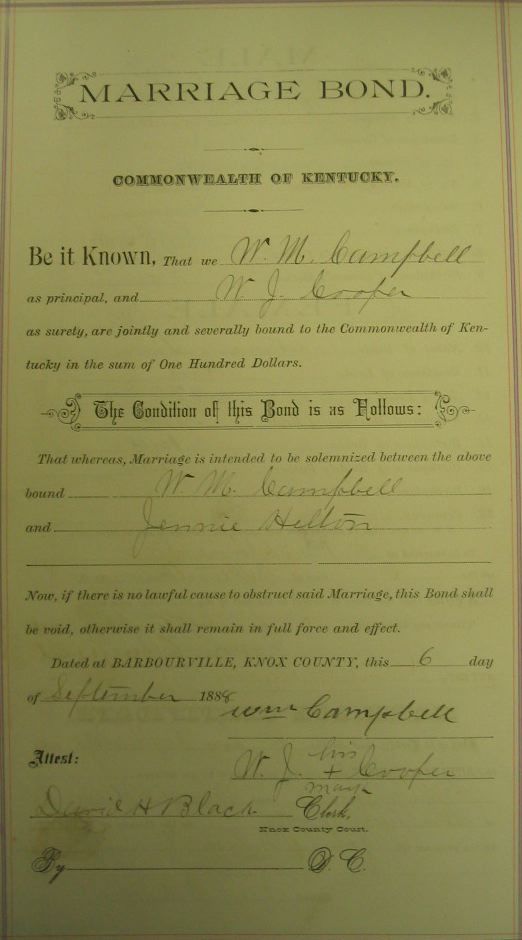 MARRIAGE BOND.
COMMONWEALTH OF KENTUCKY.
Be it Known, That we W. M. Campbell
as principal, and W. J. Cooper
as surety, are jointly and severally bound to the Commonwealth of Ken-
tucky in the sum of One Hundred Dollars.
The Condition of this Bond is as Follows:
That whereas, Marriage is intended to be solemnized between the above
bound W. M. Campbell
and Jennie Helton
Now, if there is no lawful cause to obstruct said Marriage, this Bond shall
be void, otherwise it shall remain in full force and effect.
Dated at BARBOURVILLE, KNOX COUNTY, this 6 day
of September 1888
Wm Campbell
Attest:
his
W. J. + Cooper
mark
H Black Clerk,
Knox County Court.
By D. C.